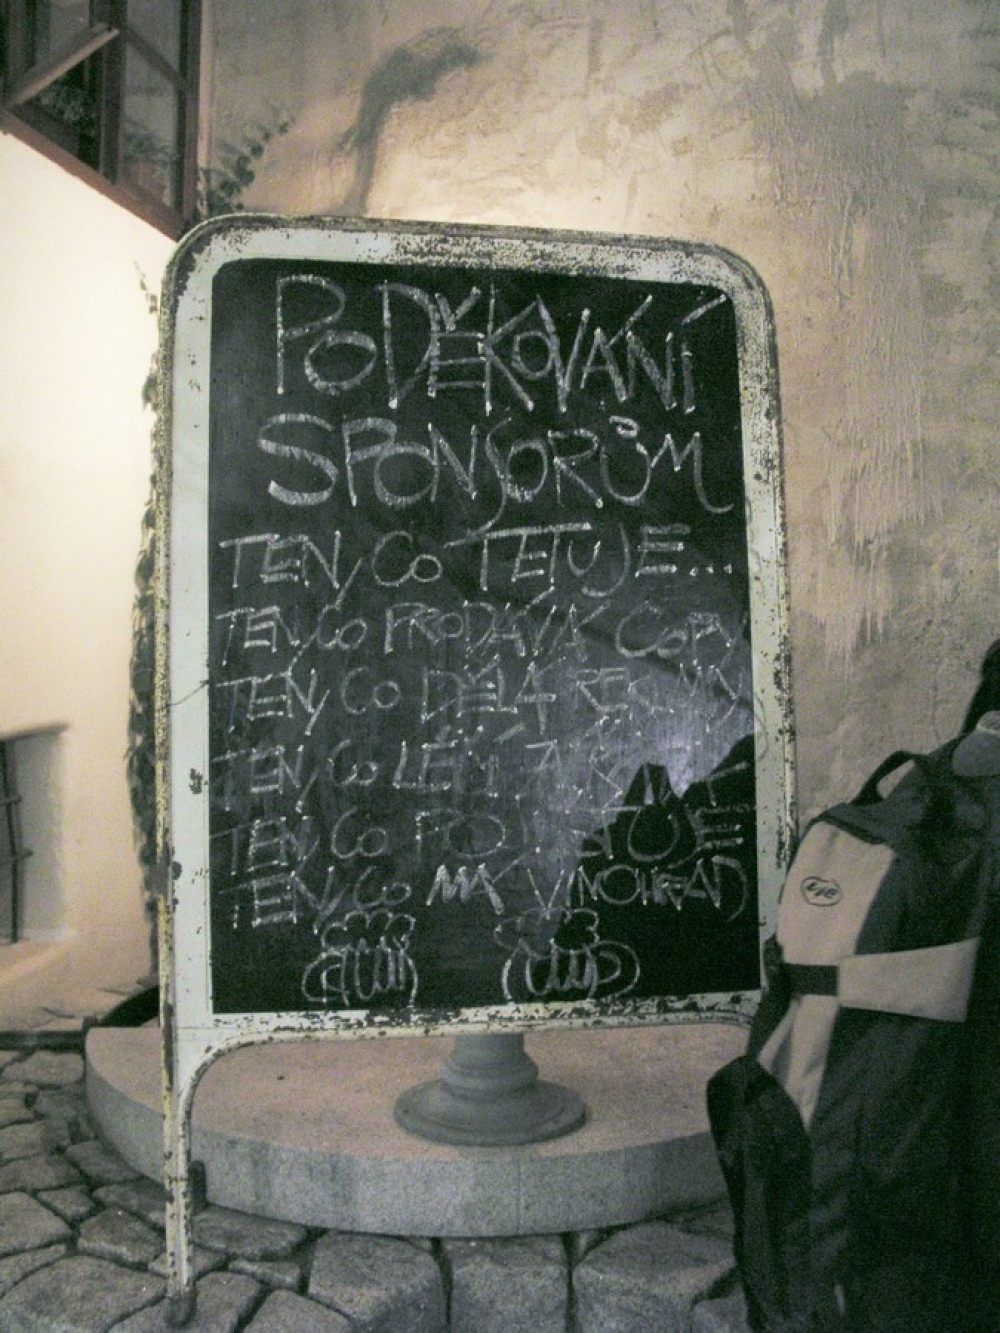 PODĚKOVÁNÍ
SPONSORŮM
TEN, CO TETUJE...
TEN, CO PRODÁVÁ COPY
TEN, CO DĚLÁ REKLAMY
TEN, CO LÉČÍ
TEN, CO
TEN, CO MÁ VINOHRAD